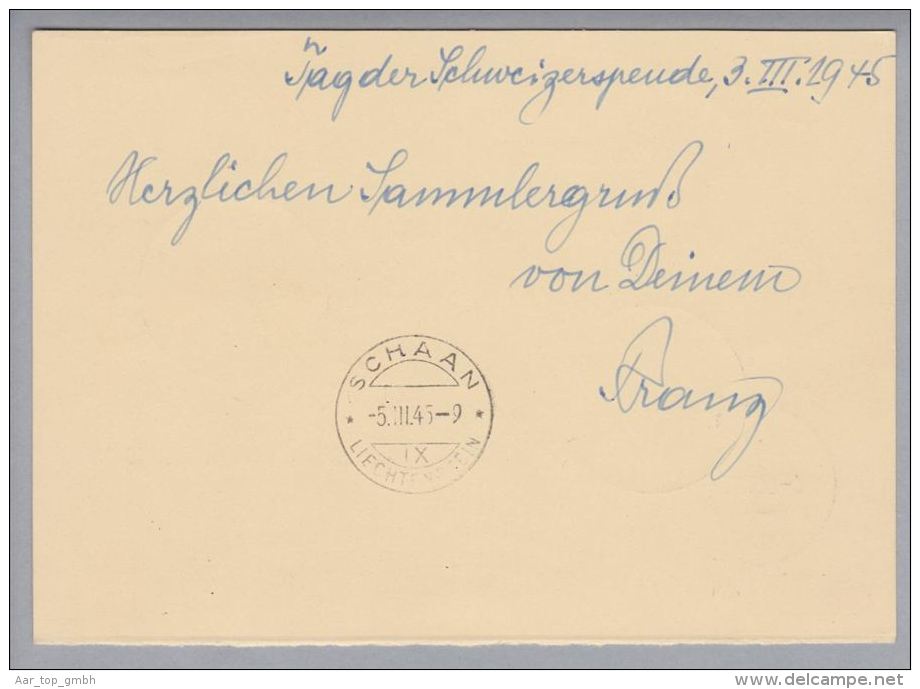 Tag der Schweizerspende, 3. III. 1945
Herzlichen Sammlergruß
von Deinem
Franz
SCHAAN
* -5.III.45-9 *
IX
LIECHTENSTEIN
Aar_top_gmbh
www.delcampe.net